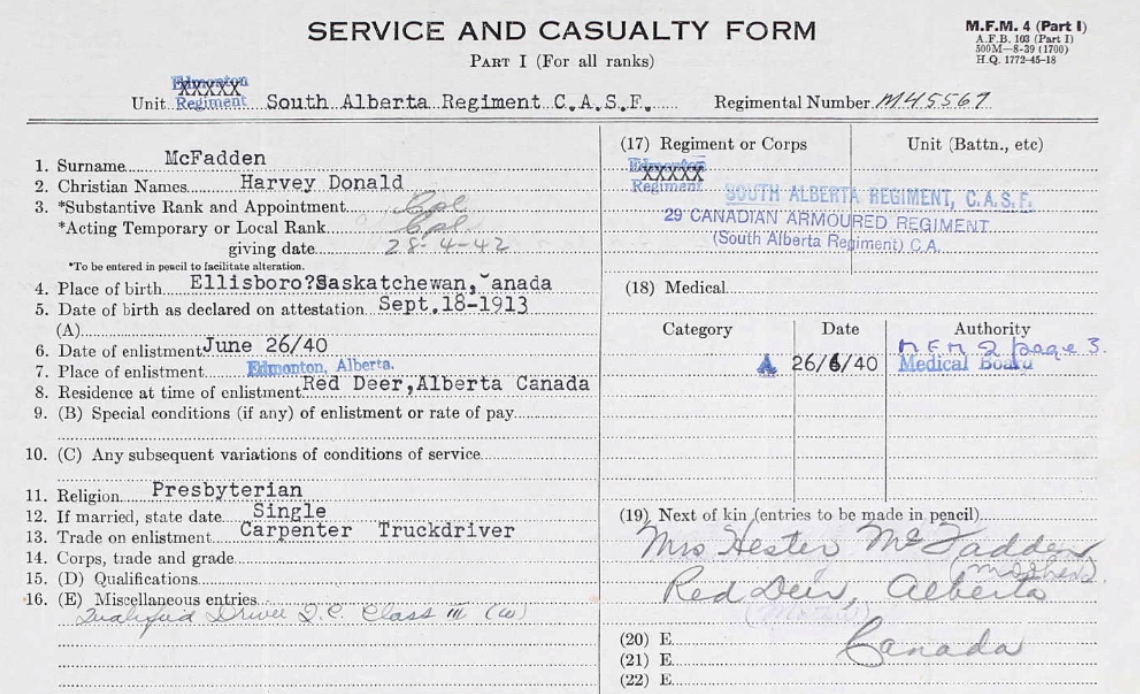 SERVICE AND CASUALTY FORM
PART I (For all ranks)
M.F.M. 4 (Part I)
A.F.B. 103 (Part I)
500M—8-39 (1700)
H.Q. 1772-45-18
Unit Edmonton Regiment XXXXX South Alberta Regiment C.A.S.F. Regimental Number M45567
1. Surname McFadden
2. Christian Names Harvey Donald
3. *Substantive Rank and Appointment Cpl
*Acting Temporary or Local Rank Cpl
giving date 28-4-42
*To be entered in pencil to facilitate alteration.
4. Place of birth Ellisboro?Saskatchewan, anada
5. Date of birth as declared on attestation Sept.18-1913
(A)
6. Date of enlistment June 26/40
7. Place of enlistment Edmonton, Alberta.
8. Residence at time of enlistment Red Deer,Alberta Canada
9. (B) Special conditions (if any) of enlistment or rate of pay
10. (C) Any subsequent variations of conditions of service
11. Religion Presbyterian
12. If married, state date Single
13. Trade on enlistment Carpenter Truckdriver
14. Corps, trade and grade
15. (D) Qualifications
16. (E) Miscellaneous entries
Qualified Driver I.C. Class III (w)
(17) Regiment or Corps Unit (Battn., etc)
Edmonton
XXXXX
Regiment
SOUTH ALBERTA REGIMENT, C.A.S.F.
29 CANADIAN ARMOURED REGIMENT
(South Alberta Regiment) C.A.
(18) Medical
Category Date Authority
MFM 2 page 3.
A 26/6/40 Medical Board
(19) Next of kin (entries to be made in pencil)
Mrs Hester McFadden
(mother)
Red Deer, Alberta
(Mother)
Canada
(20) E
(21) E
(22) E